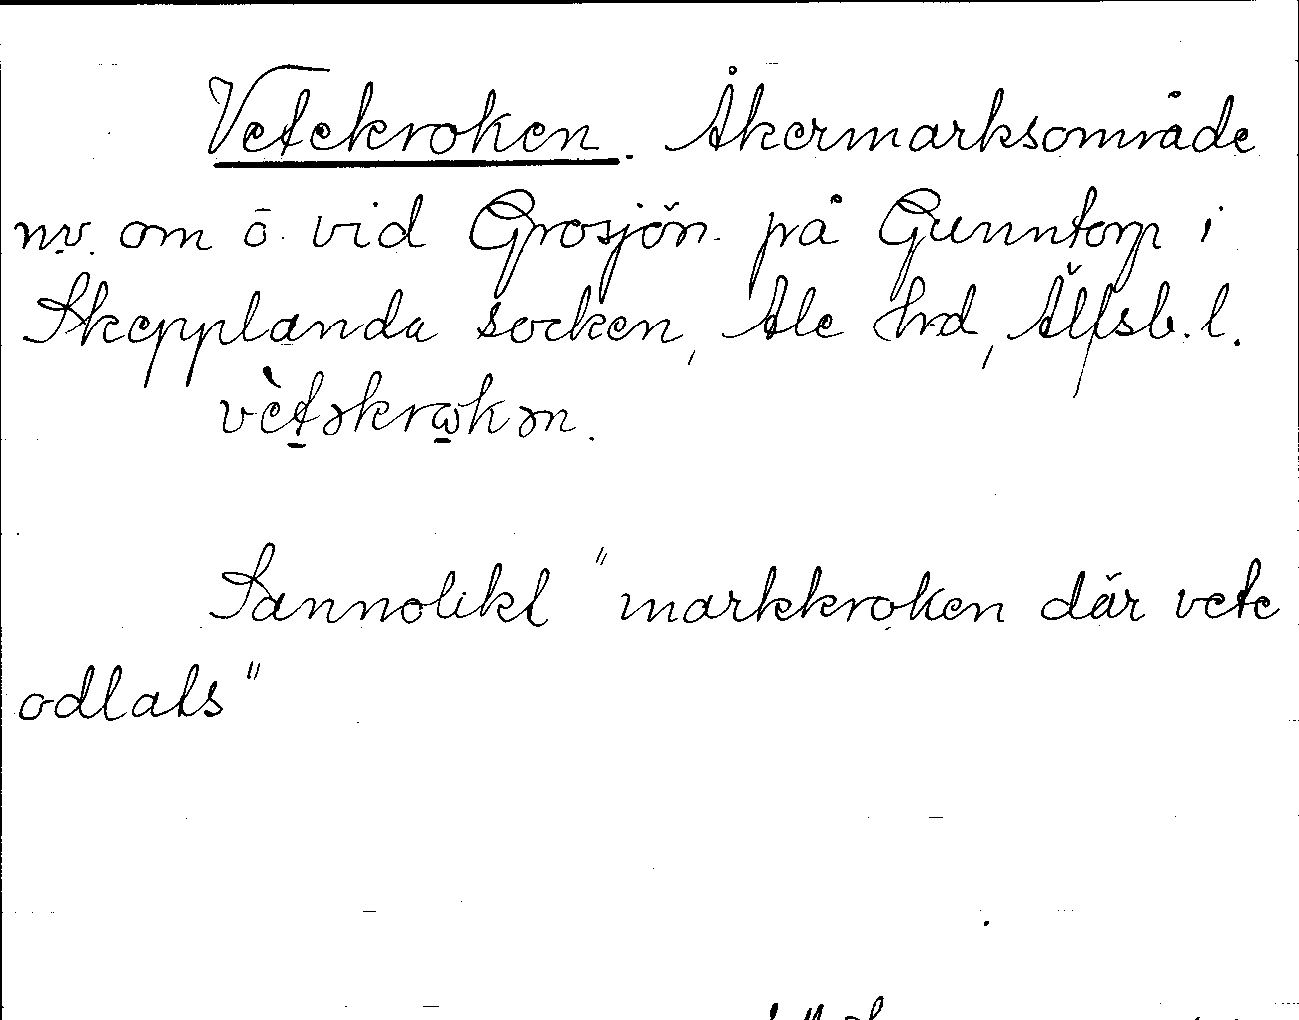 Vetekroken. Åkermarksområde
nv. om ö. vid Grosjön på Gunntorp i
Skepplanda socken, Ale hrd, Älfsb. l.
vètəkrωkən.
Sannolikt "markkroken där vete
odlats"